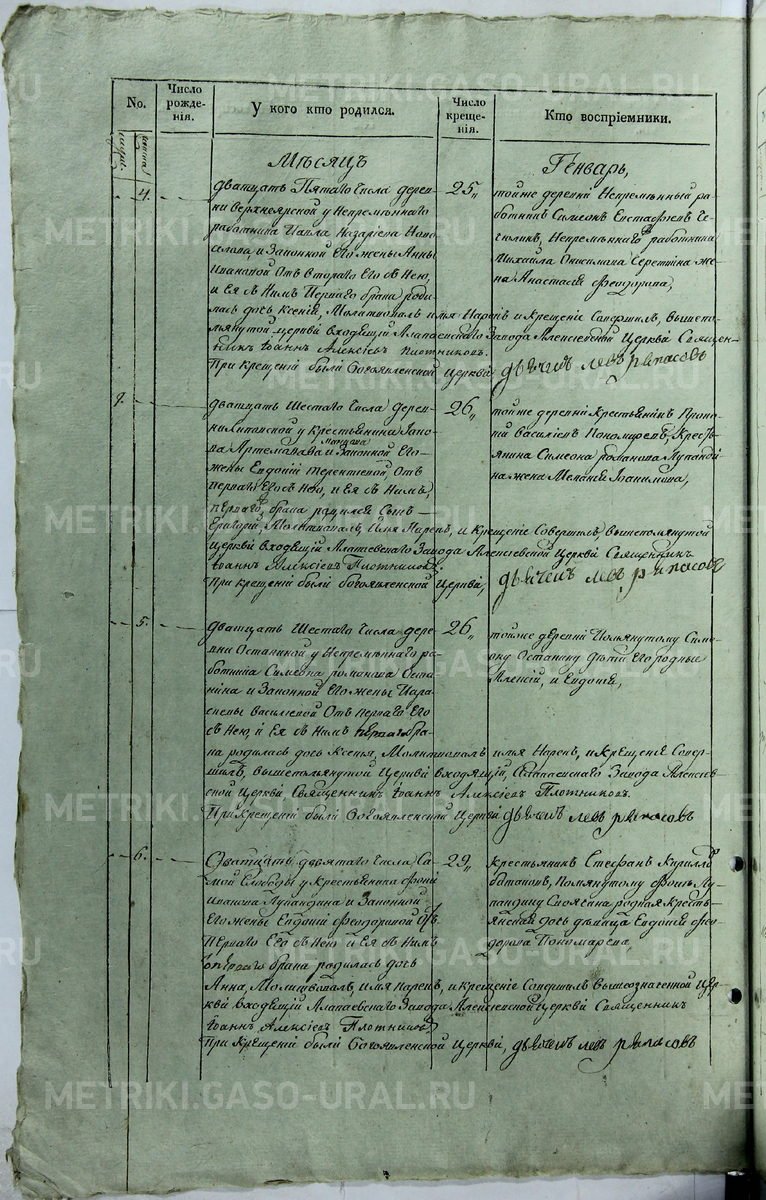 METRIKI.GASO-URAL.RU
No.
Число рожде-нія.
У кого кто родился.
Число креще-нія.
Кто воспріемники.
Мѣсяцъ
Генварь,
4.
дватцать Пятаго Числа дерев-
ни Верхнеярской у Непремѣннаго
работника Павла Назарieва
и Законной Его жены Анны
Ивановой Отъ втораго Его съ Нею,
и Ея съ Нимъ Перваго брака роди-
лась дочь Ксенія, Молитвовалъ имя Нарекъ и Крещеніе Совершилъ, вышепо-
мянутой церкви входящій Алапаевскаго Завода Алексіевской Церкви Священ-
никъ Іоаннъ Алексіевъ Плотниковъ.
При Крещеніи были Богоявленской Церкви
25,,
тойже деревни Непремѣнный ра-
ботникъ Симеонъ Евстафіевъ
Непремѣннаго работника
Михаила Онисимова же-
на Анастасія Феодорова,
дьячекъ левъ
7.
дватцать Шестаго Числа дерев-
ни у Крестьянина
и Законной Его
жены Евдокіи Терентіевой, Отъ
перваго Его съ Нею, и Ея съ Нимъ
перваго брака родился Сынъ
Григорій, Молитвовалъ, Имя Нарекъ, и Крещеніе Совершилъ, вышепомянутой
Церкви входящій Алапаевскаго Завода Алексіевской Церкви Священникъ
Іоаннъ Алексіевъ Плотниковъ.
При крещеніи были Богоявленской Церкви,
26,,
тойже деревни Крестьянинъ
Василіевъ Пономаревъ, Кресть-
янина Симеона
жена Меланія
дьячекъ левъ
5.
дватцать Шестаго Числа дерев-
ни Останиной у Непремѣннаго ра-
ботника Симеона Романова Оста-
нина и Законной Его жены Пара-
скевы Василіевой Отъ перваго Его
съ Нею, и Ея съ Нимъ перваго бра-
ка родилась дочь Ксенія, Молитвовалъ имя Нарекъ, и Крещеніе Совер-
шилъ, вышепомянутой Церкви входящій, Алапаевскаго Завода Алексіев-
ской Церкви Священникъ Іоаннъ Алексіевъ Плотниковъ.
При Крещеніи были Богоявленской Церкви
26,,
тойже деревни Помянутому Симе-
ону Останину дѣти Его родные
Алексій, и Евдокія,
дьячекъ левъ
6.
Дватцать девятаго Числа Са-
мой Слободы у Крестьянина
Иванова Лупандина и Законной
Его жены Евдокіи Феодоровой Отъ
Перваго Его съ Нею и Ея съ Нимъ
перваго брака родилась дочь
Анна, Молитвовалъ, имя нарекъ, и Крещеніе Совершилъ Вышеозначенной Цер-
кви Входящій Алапаевскаго Завода Алексіевской Церкви Священникъ
Іоаннъ Алексіевъ Плотниковъ
При Крещеніи были Богоявленской Церкви,
29,,
Крестьянинъ Стефанъ Кирилловъ
Помянутому Лу-
пандину родная Кресть-
янская дочь дѣвица Евдокія Фео-
дорова Пономарева,
дьячекъ левъ